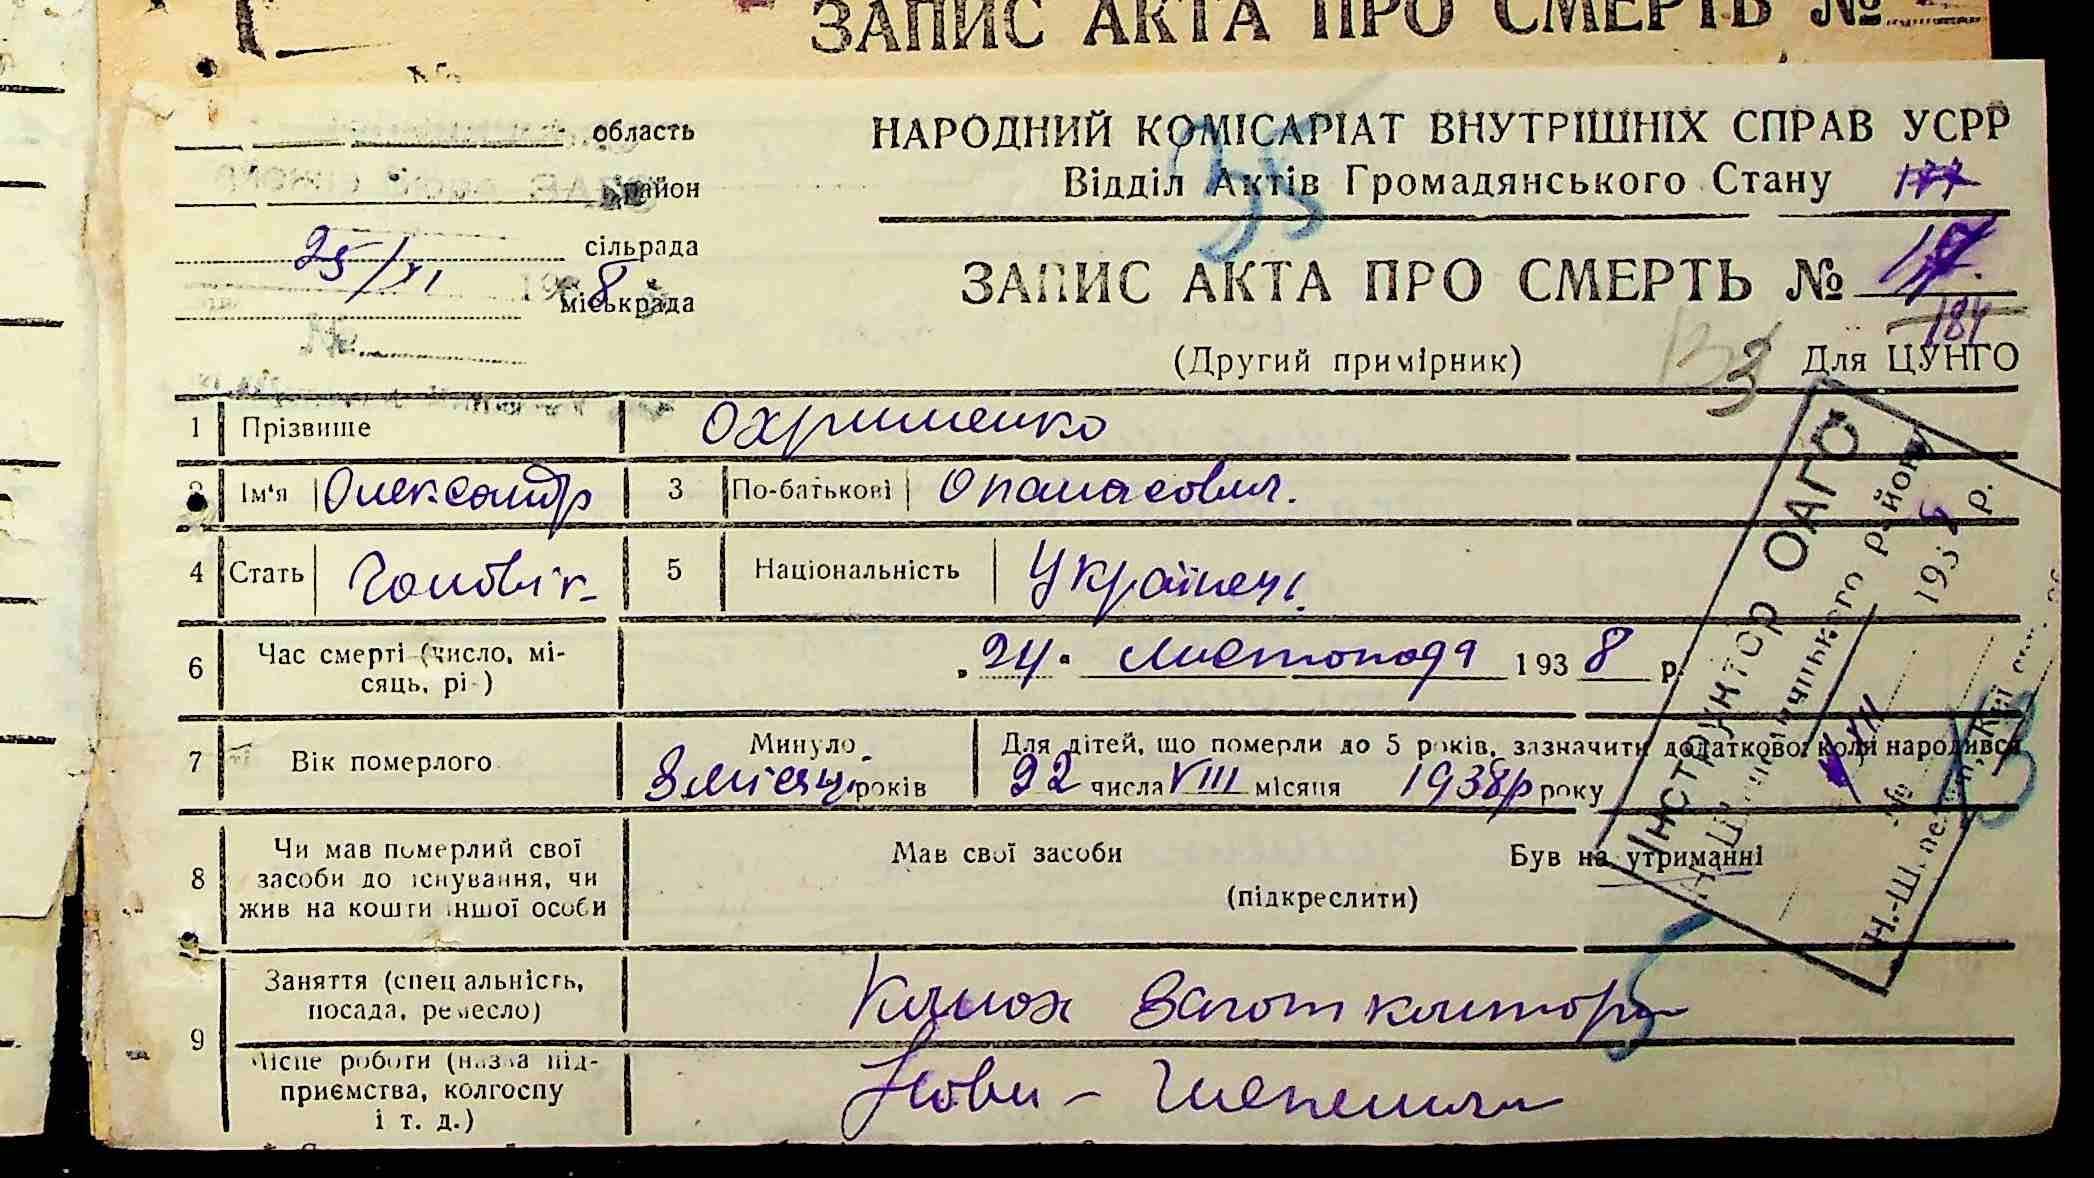 ЗАПИС АКТА ПРО СМЕРТЬ №
область
район
сільрада
25/XI 1938
міськрада
№
НАРОДНИЙ КОМІСАРІАТ ВНУТРІШНІХ СПРАВ УСРР
Відділ Актів Громадянського Стану 177
35
ЗАПИС АКТА ПРО СМЕРТЬ №
184
(Другий примірник)
Для ЦУНГО
1 Прізвище Охрименко
2 Ім'я Олександр 3 По-батькові Опанасович.
4 Стать Чоловік 5 Національність Українець.
6 Час смерті (число, місяць, рік) „24" листопада 1938 р.
7 Вік померлого Минуло 3 місяці років Для дітей, що померли до 5 років, зазначити додатково: коли народився
22 числа VIII місяця 1938р року
8 Чи мав померлий свої засоби до існування, чи жив на кошти іншої особи Мав свої засоби Був на утриманні
(підкреслити)
9 Заняття (спеціальність, посада, ремесло)
Місце роботи (назва підприємства, колгоспу і т. д.)
Інструктор ОАГС
району
193 р.